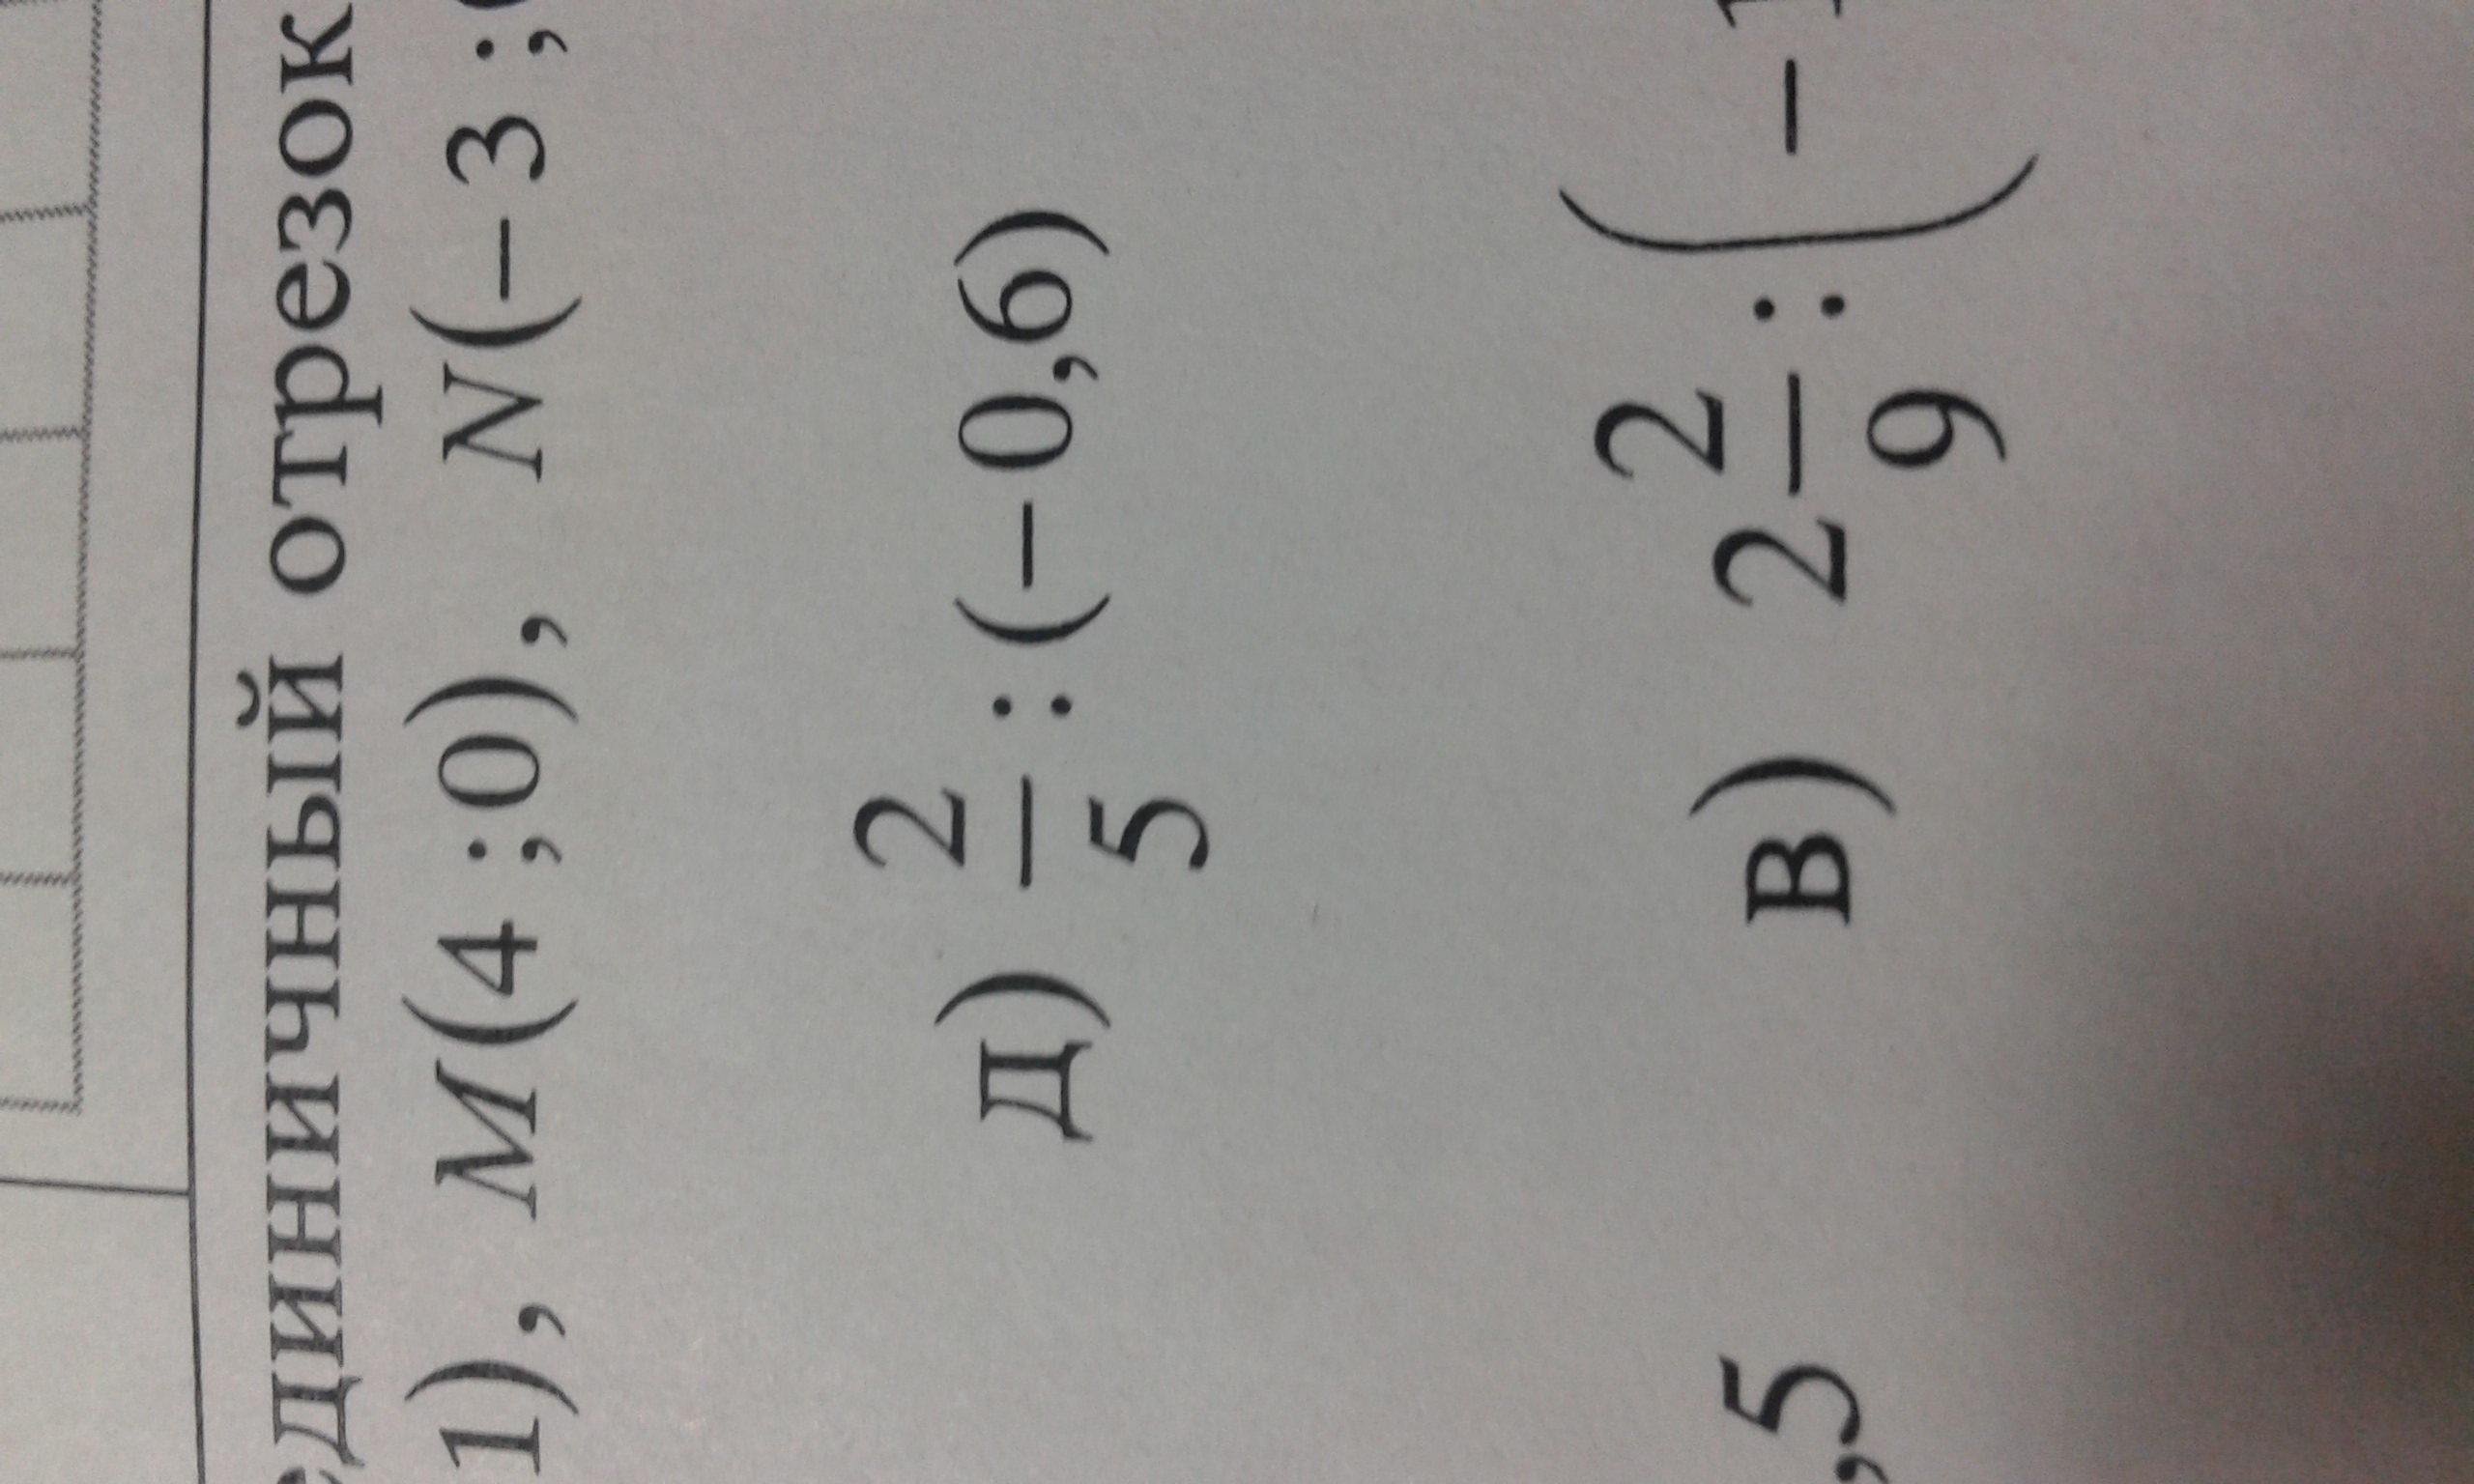 единичный отрезок
1), M(4 ;0), N(− 3 ;
Д) 2/5 : (− 0,6)
,5 В) 2 2/9 : ( − 1